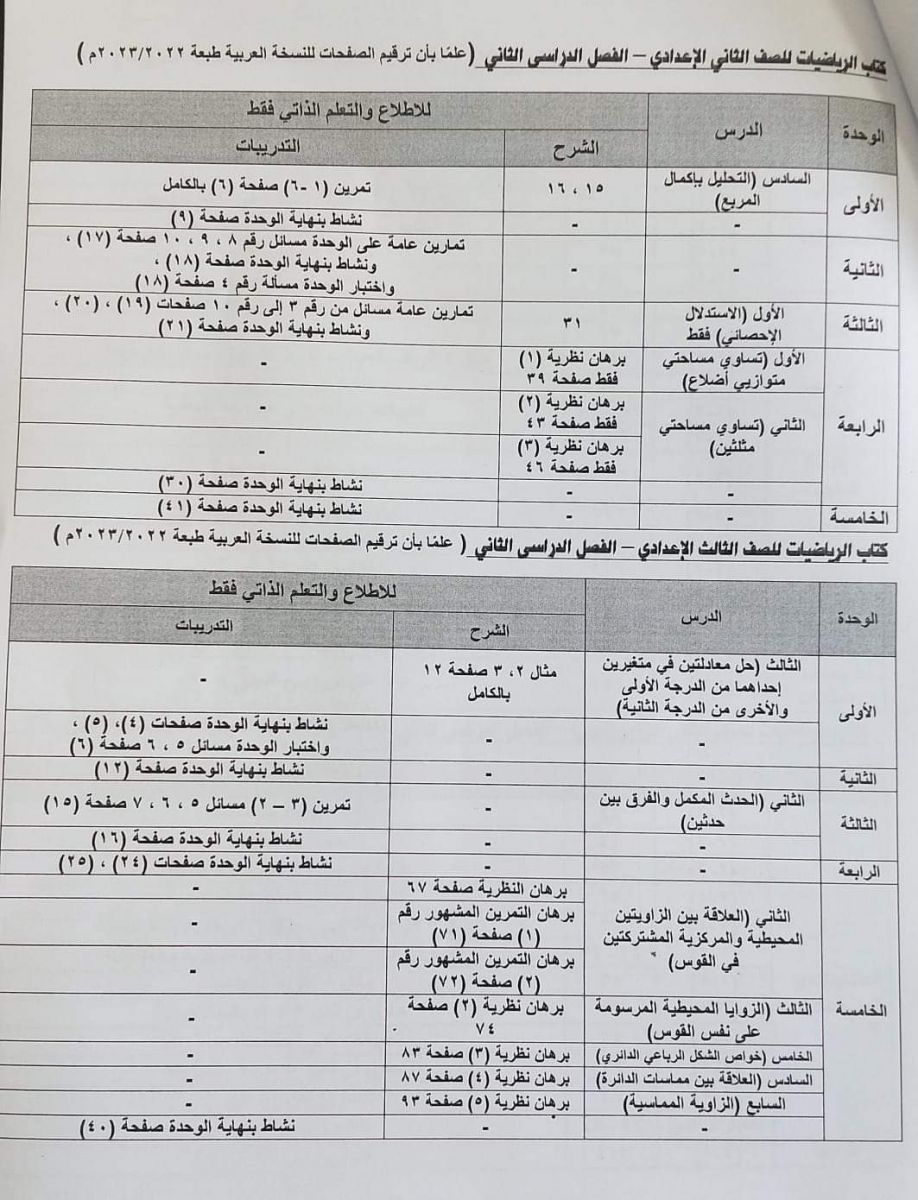 كتاب الرياضيات للصف الثاني الإعدادي – الفصل الدراسي الثاني (علمًا بأن ترقيم الصفحات للنسخة العربية طبعة ٢٠٢٣/٢٠٢٢م)
الوحدة
الدرس
للاطلاع والتعلم الذاتي فقط
الشرح
التدريبات
الأولى
السادس (التحليل بإكمال
المربع)
١٥ ، ١٦
تمرين (١ -٦) صفحة (٦) بالكامل
-
-
نشاط بنهاية الوحدة صفحة (٩)
الثانية
-
-
تمارين عامة على الوحدة مسائل رقم ٨ ، ٩ ، ١٠ صفحة (١٧) ،
ونشاط بنهاية الوحدة صفحة (١٨) ،
واختبار الوحدة مسألة رقم ٤ صفحة (١٨)
الثالثة
الأول (الاستدلال
الإحصائي) فقط
٣١
تمارين عامة مسائل من رقم ٣ إلى رقم ١٠ صفحات (١٩) ، (٢٠) ،
ونشاط بنهاية الوحدة صفحة (٢١)
الرابعة
الأول (تساوي مساحتي
متوازيي أضلاع)
برهان نظرية (١)
فقط صفحة ٣٩
-
الثاني (تساوي مساحتي
مثلثين)
برهان نظرية (٢)
فقط صفحة ٤٣
-
برهان نظرية (٣)
فقط صفحة ٤٦
-
-
-
نشاط بنهاية الوحدة صفحة (٣٠)
الخامسة
-
-
نشاط بنهاية الوحدة صفحة (٤١)
كتاب الرياضيات للصف الثالث الإعدادي – الفصل الدراسي الثاني ( علمًا بأن ترقيم الصفحات للنسخة العربية طبعة ٢٠٢٣/٢٠٢٢م )
الوحدة
الدرس
للاطلاع والتعلم الذاتي فقط
الشرح
التدريبات
الأولى
الثالث (حل معادلتين في متغيرين
إحداهما من الدرجة الأولى
والأخرى من الدرجة الثانية)
مثال ٢، ٣ صفحة ١٢
بالكامل
-
-
-
نشاط بنهاية الوحدة صفحات (٤)، (٥) ،
واختبار الوحدة مسائل ٥ ، ٦ صفحة (٦)
الثانية
-
-
نشاط بنهاية الوحدة صفحة (١٢)
الثالثة
الثاني (الحدث المكمل والفرق بين
حدثين)
-
تمرين (٣ – ٢) مسائل ٥ ، ٦ ، ٧ صفحة (١٥)
-
-
نشاط بنهاية الوحدة صفحة (١٦)
الرابعة
-
-
نشاط بنهاية الوحدة صفحات (٢٤) ، (٢٥)
الخامسة
الثاني (العلاقة بين الزاويتين
المحيطية والمركزية المشتركتين
في القوس)
برهان النظرية صفحة ٦٧
-
برهان التمرين المشهور رقم
(١) صفحة (٧١)
-
برهان التمرين المشهور رقم
(٢) صفحة (٧٢)
-
الثالث (الزوايا المحيطية المرسومة
على نفس القوس)
برهان نظرية (٢) صفحة
٧٤
-
الخامس (خواص الشكل الرباعي الدائري)
برهان نظرية (٣) صفحة ٨٣
-
السادس (العلاقة بين مماسات الدائرة)
برهان نظرية (٤) صفحة ٨٧
-
السابع (الزاوية المماسية)
برهان نظرية (٥) صفحة ٩٣
-
-
-
نشاط بنهاية الوحدة صفحة (٤٠)